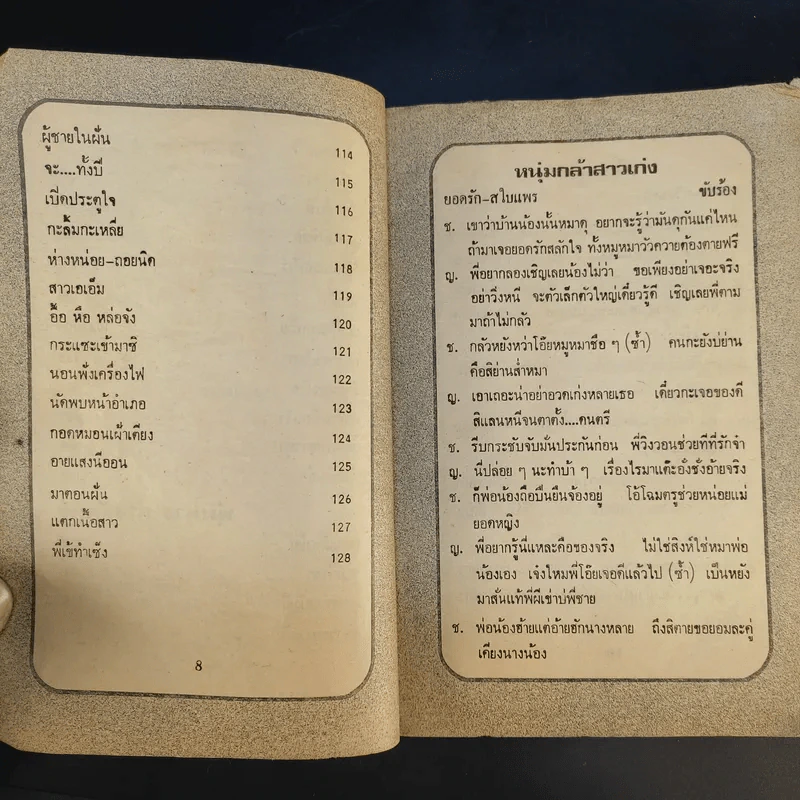 ผู้ชายในฝัน 114
จะ....ทั้งปี 115
เปิดประตูใจ 116
กะล้มกะเหลี่ย 117
ห่างหน่อย-ถอยนิด 118
สาวเอเอ็ม 119
อื้อ หือ หล่อจัง 120
กระแซะเข้ามาซิ 121
นอนฟังเครื่องไฟ 122
นัดพบหน้าอำเภอ 123
กอดหมอนเฝ้าเตียง 124
อายแสงนีออน 125
มาดอนฝัน 126
แตกเนื้อสาว 127
พี่เข้ทำเซ็ง 128
8
หนุ่มกล้าสาวเก่ง
ยอดรัก-สใบแพร ขับร้อง
ช. เขาว่าบ้านน้องนั้นหมาดุ อยากจะรู้ว่ามันดุกันแค่ไหน
ถ้ามาเจอยอดรักสลักใจ ทั้งหมูหมาวัวควายต้องตายฟรี
ญ. พี่อยากลองเชิญเลยน้องไม่ว่า ขอเพียงอย่าเจอะจริง
อย่าวิ่งหนี จะตัวเล็กตัวใหญ่เดี๋ยวรู้ดี เชิญเลยพี่ตาม
มาถ้าไม่กลัว
ช. กลัวหยังหว่าโอ๊ยหมูหมาซือ ๆ (ซ้ำ) คนกะยังบ่ย่าน
คือสิย่านส่ำหมา
ญ. เอาเถอะน่าอย่าอวดเก่งหลายเธอ เดี๋ยวกะเจอของดี
สิแลนหนีจนตาตั้ง....คนตรี
ช. รีบกระชับจับมั่นประกันก่อน พี่วิงวอนช่วยทีที่รักจ๋า
ญ. นี่ปล่อย ๆ นะทำบ้า ๆ เรื่องไรมาแต๊ะอั๋งชั่งอ้ายจริง
ช. ก็พ่อน้องถือปืนยืนจ้องอยู่ โอ้โฉมตรูช่วยหน่อยแม่
ยอดหญิง
ญ. พี่อยากรู้นี่แหละคือของจริง ไม่ใช่สิงห์ใช่หมาพ่อ
น้องเอง เจ๋งไหมพี่โอ๊ยเจอดีแล้วไป (ซ้ำ) เป็นหยัง
มาสั่นแท้พี่ผีเข่าบ่พี่ชาย
ช. พ่อน้องฮ้ายแต่อ้ายฮักนางหลาย ถึงสิตายขอยอมละคู่
เคียงนางน้อง